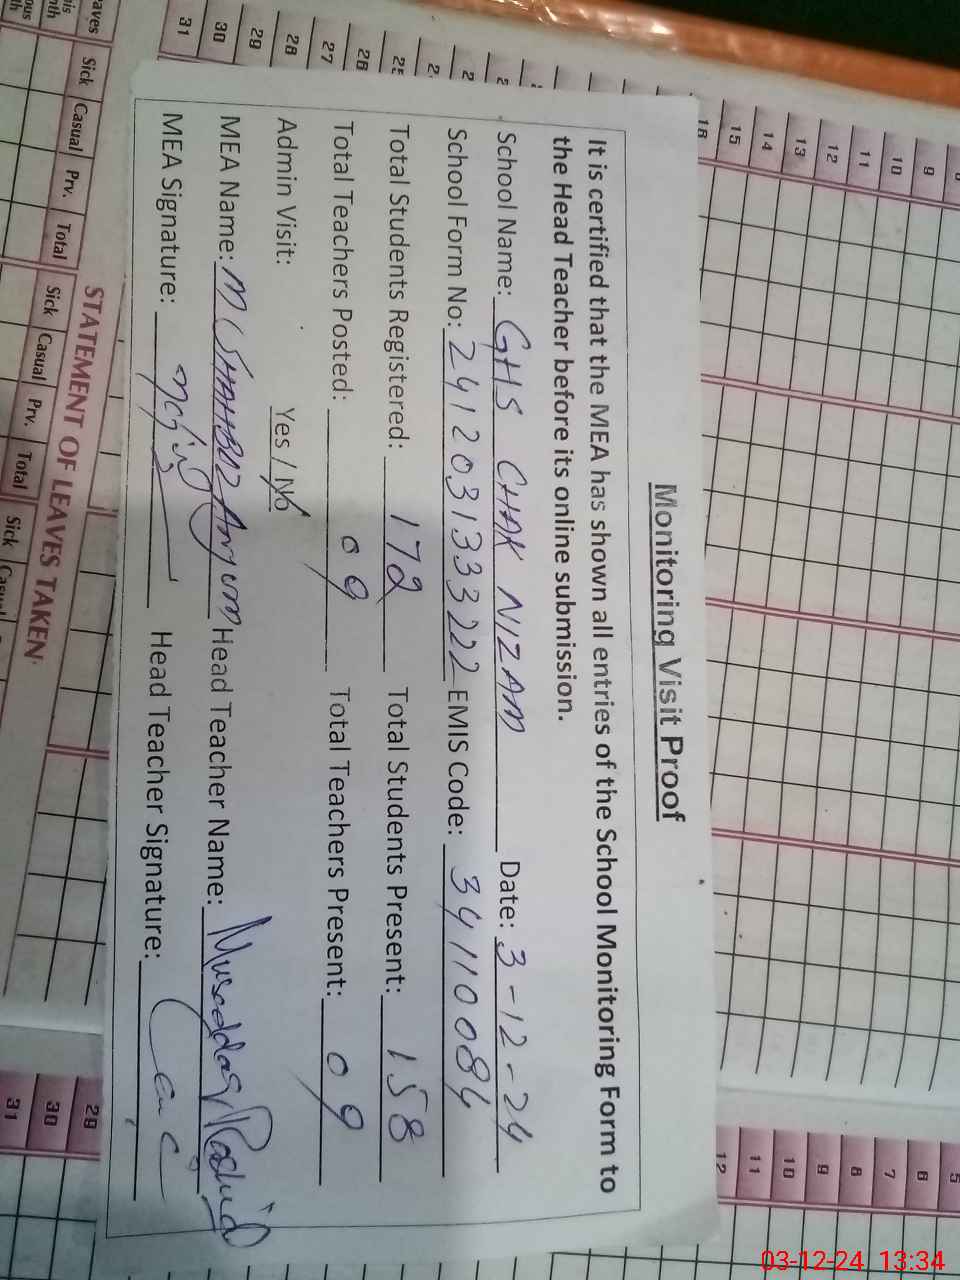 Monitoring Visit Proof
It is certified that the MEA has shown all entries of the School Monitoring Form to
the Head Teacher before its online submission.
School Name: GHS CHAK NIZAM Date: 3-12-24
School Form No: 2412031333222 EMIS Code: 34110084
Total Students Registered: 172 Total Students Present: 158
Total Teachers Posted: 09 Total Teachers Present: 09
Admin Visit: Yes / No
MEA Name: M SHAHBAZ Anjum Head Teacher Name: Musaddaq Rashid
MEA Signature: Head Teacher Signature:
STATEMENT OF LEAVES TAKEN
Sick Casual Prv. Total
Sick Casual Prv. Total
Sick
31 30 29 28 27 26
15 14 13 12 11 10 9
12 11 10 9 8 7 6 5
31 30 29
03-12-24 13:34